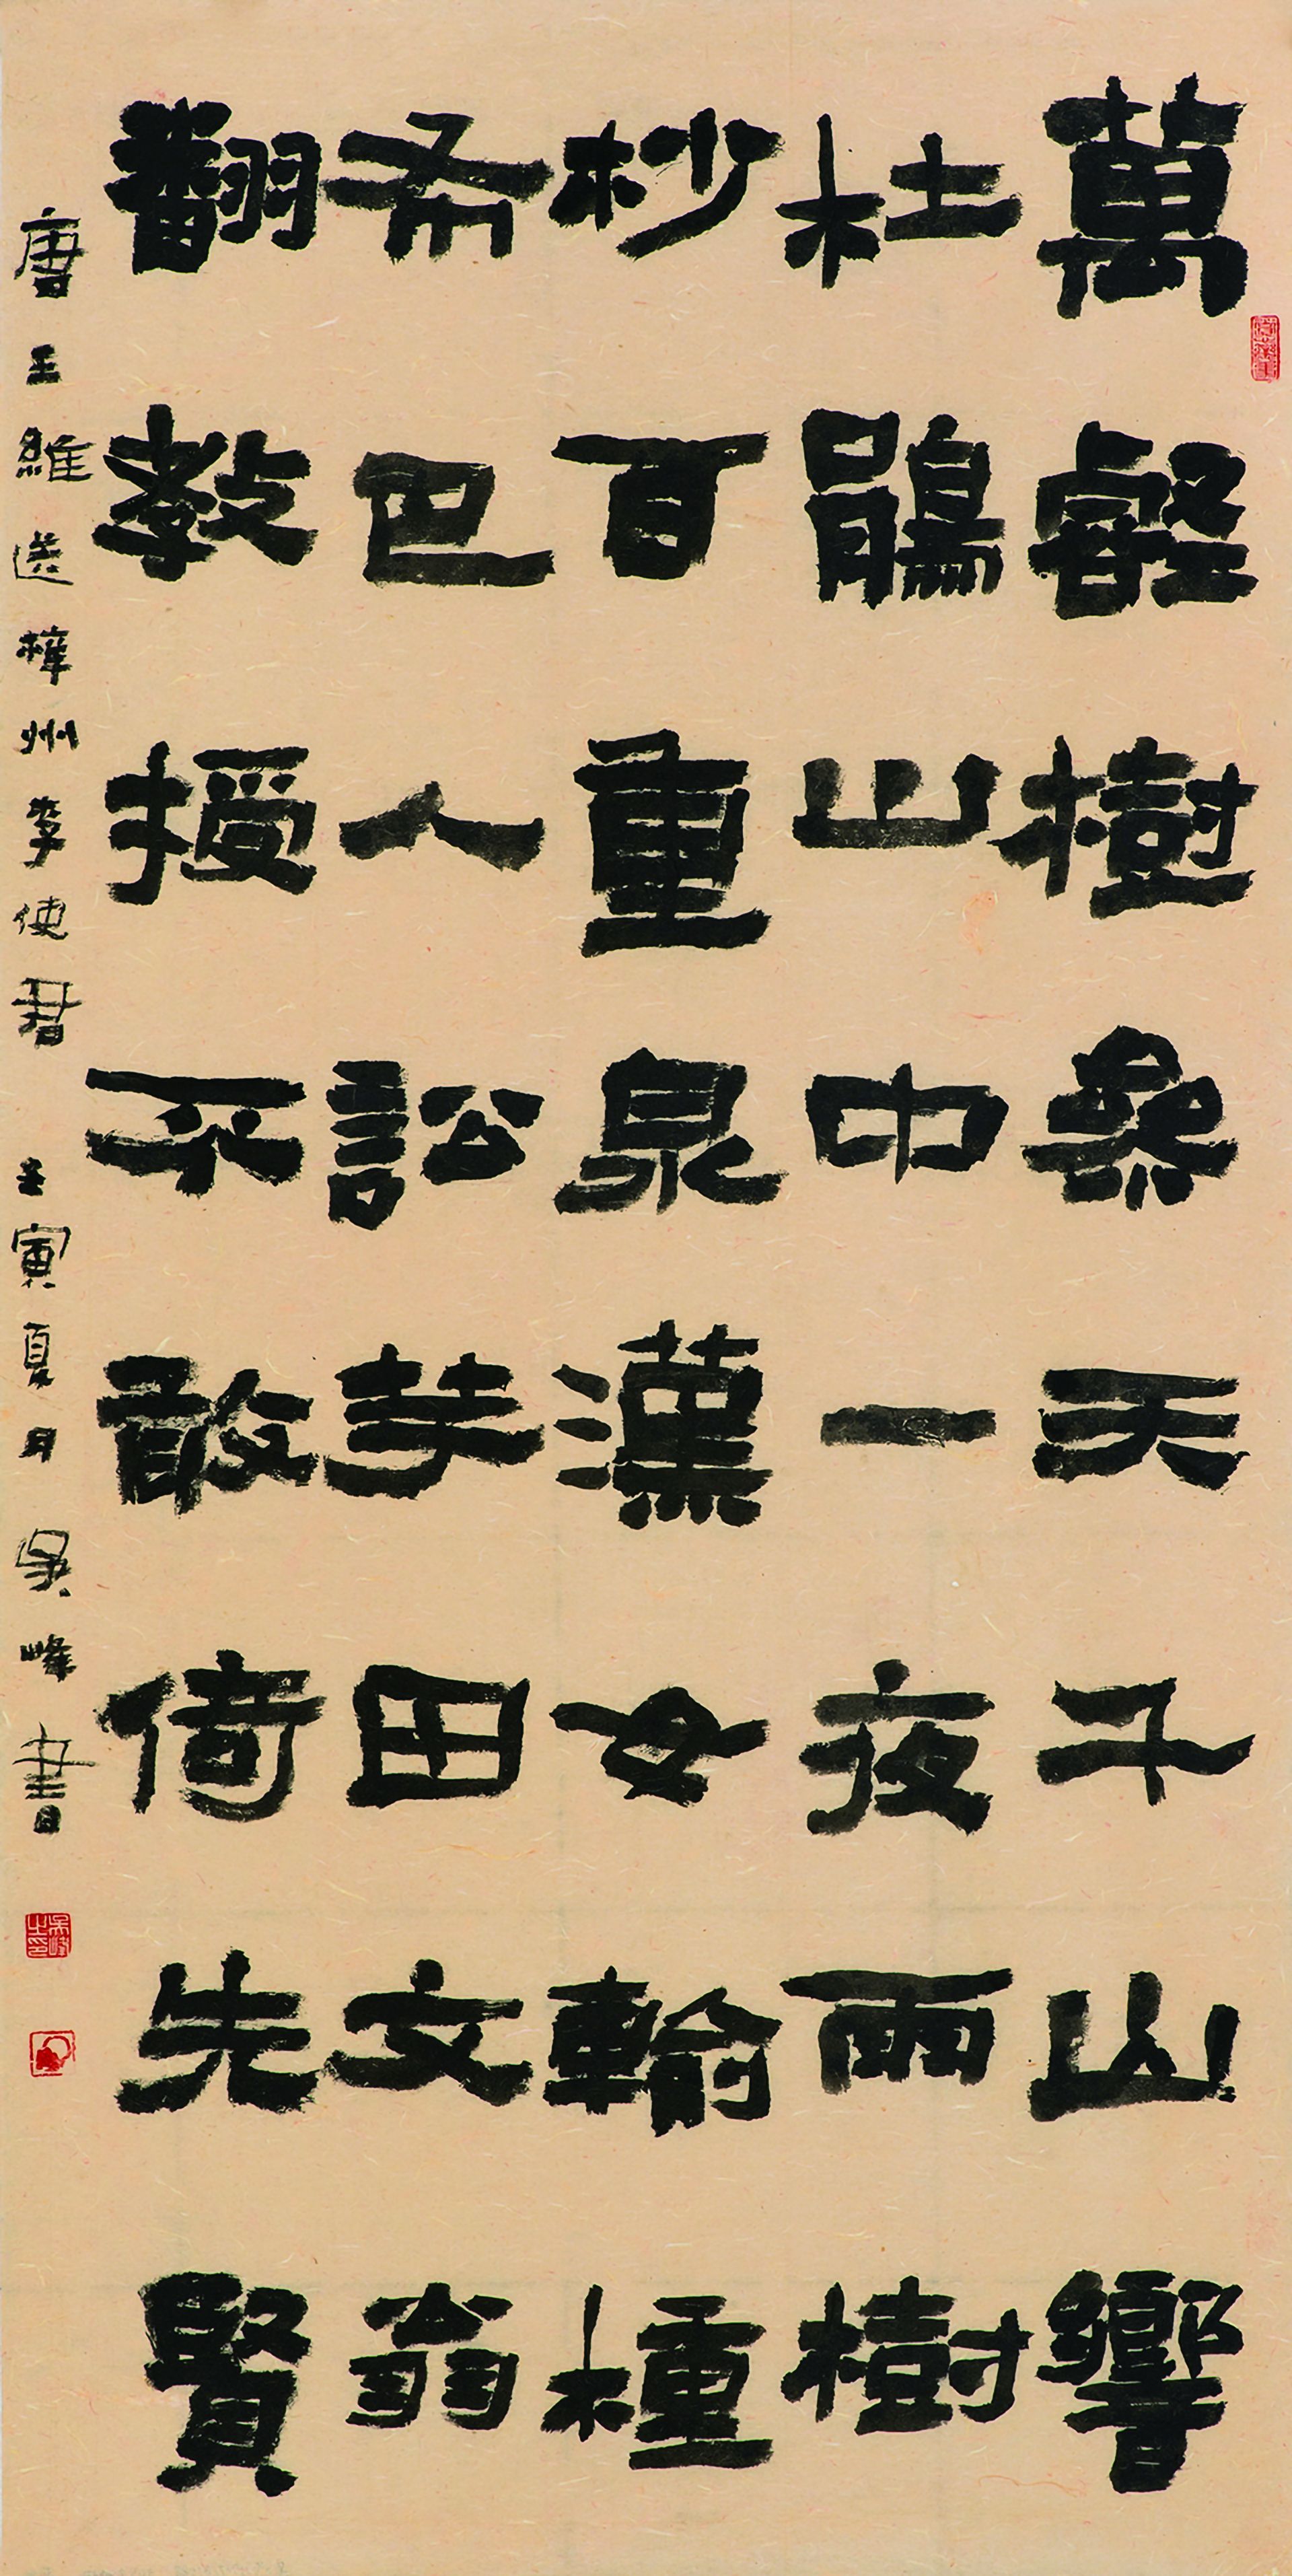 萬壑樹參天千山響
杜鵑山中一夜雨樹
杪百重泉漢女輸橦
布巴人訟芋田文翁
翻教授不敢倚先賢
唐王維送梓州李使君 壬寅夏月吳峰書
吳峰之印